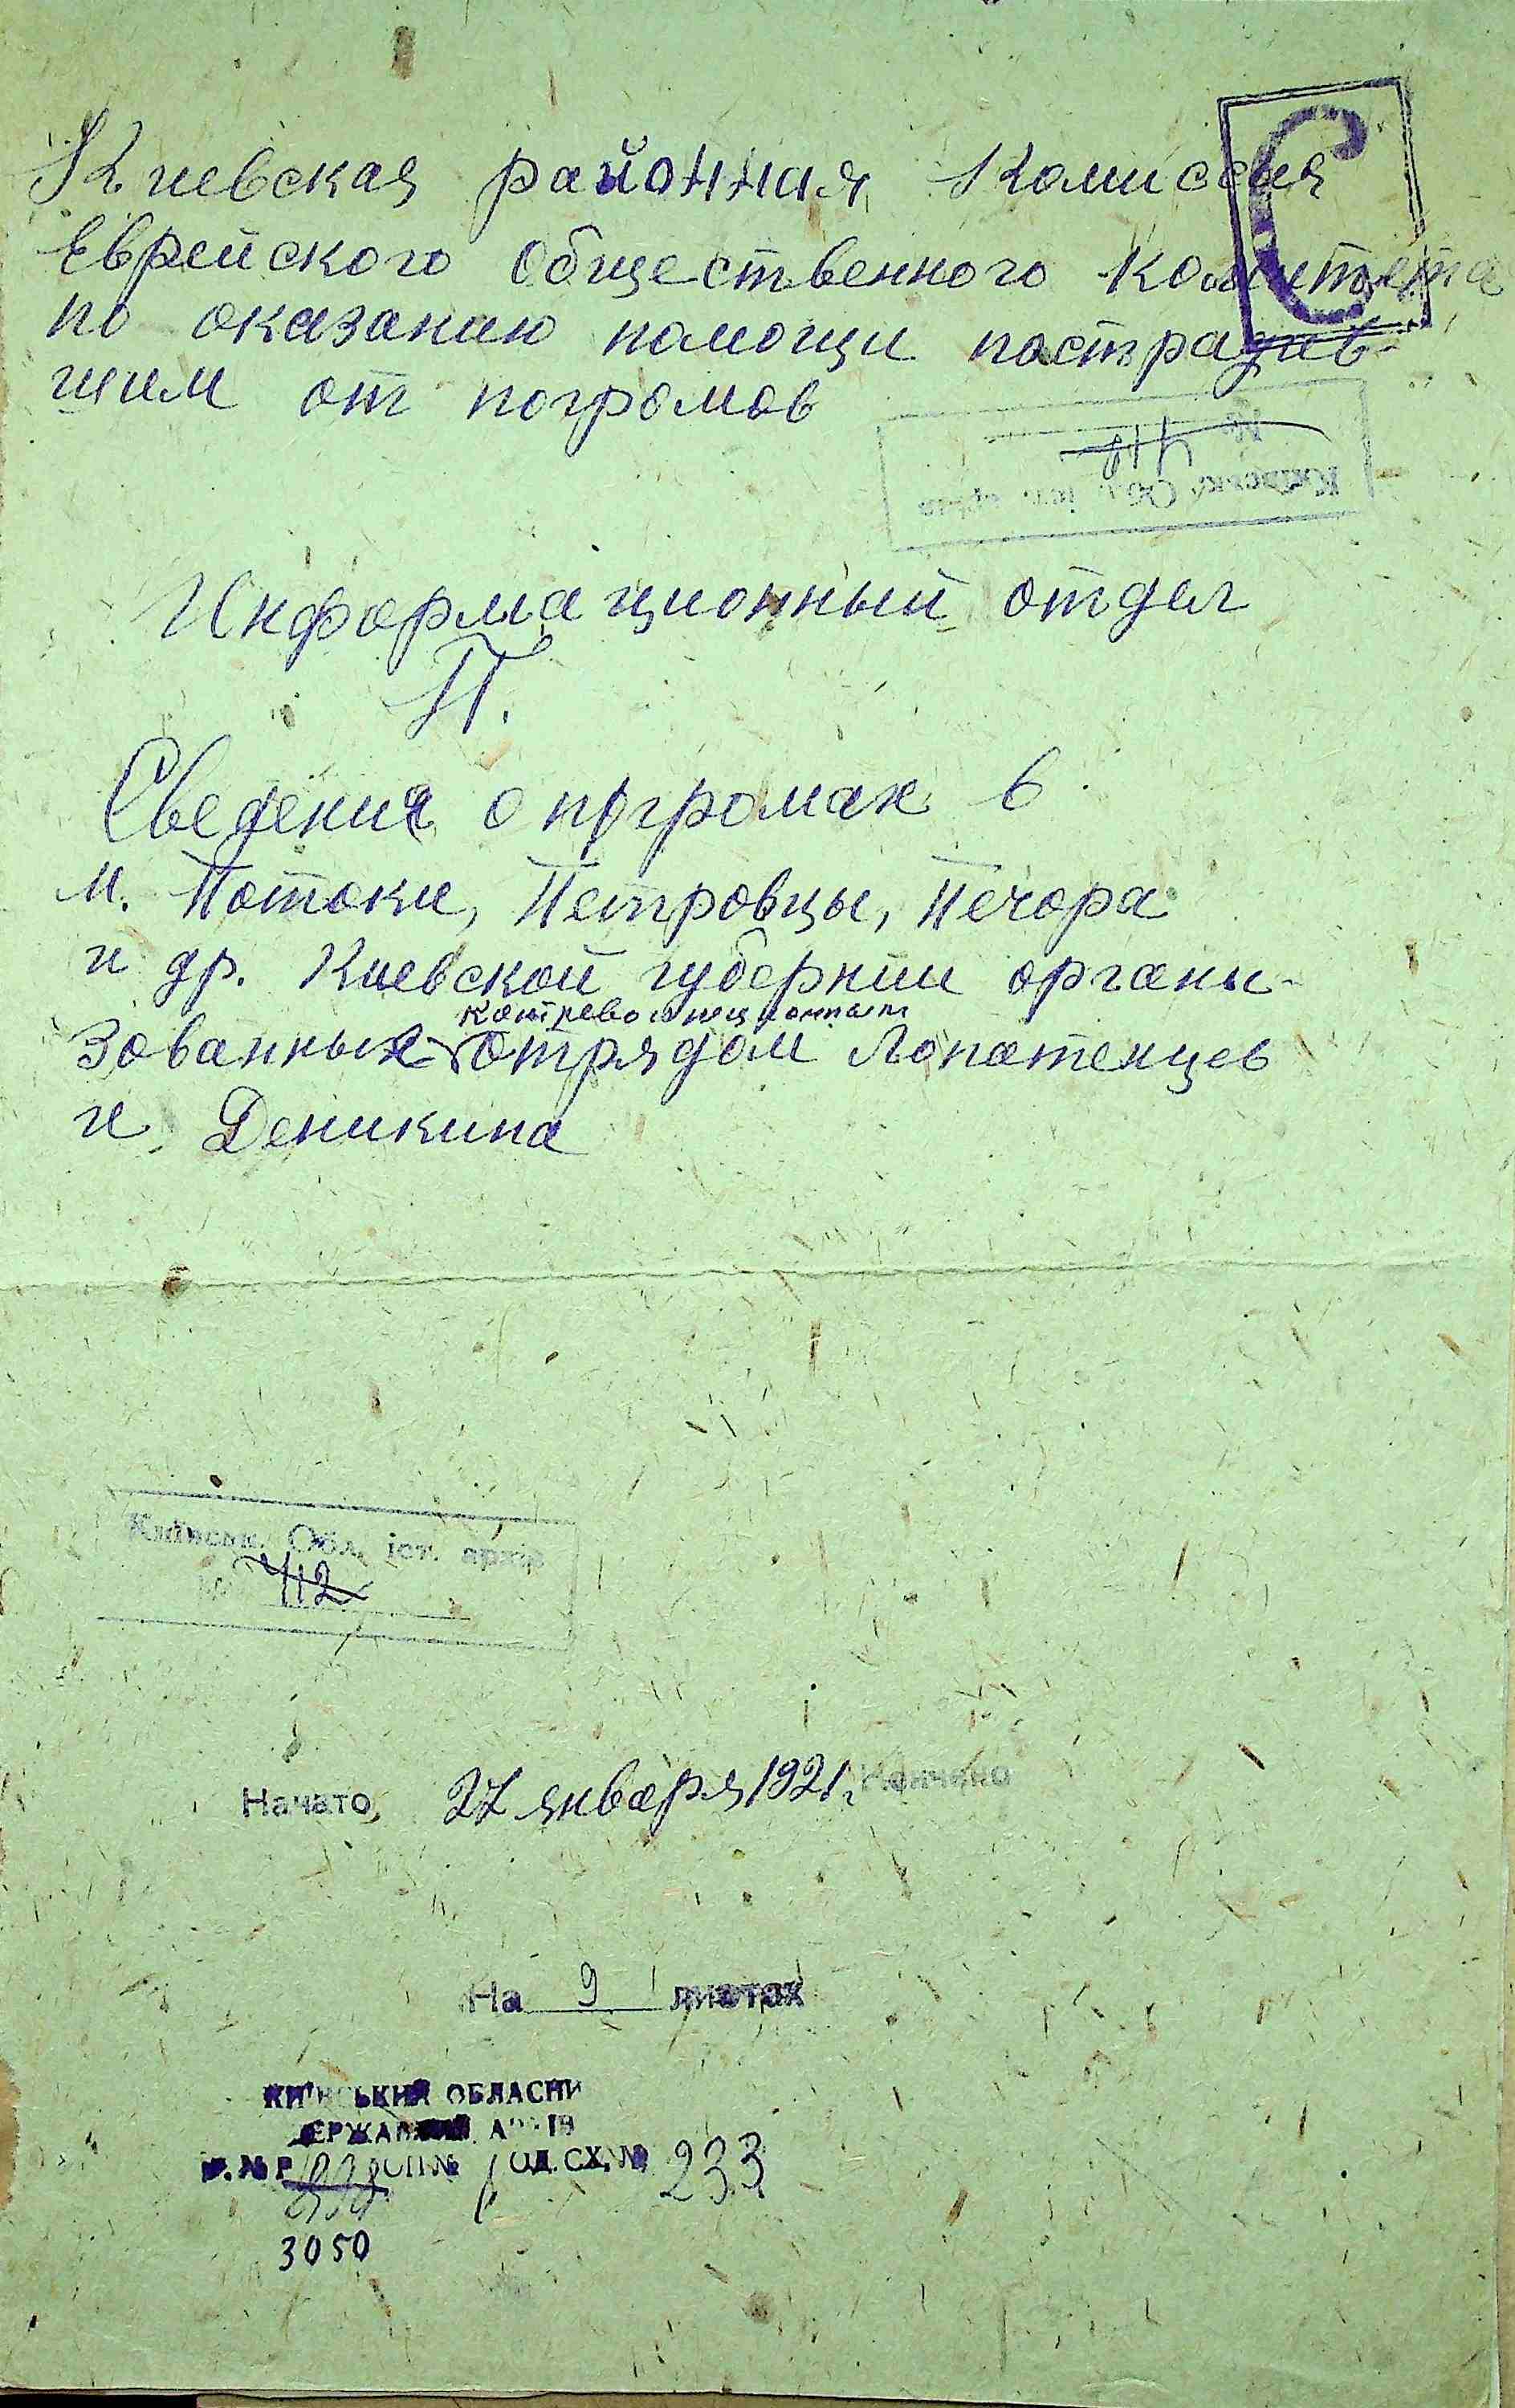 С
Киевская районная Комиссия
Еврейского Общественного Комитета
по оказанию помощи пострадав-
шим от погромов
Информационный отдел
П.
Сведения о погромах в
м. Потоки, Петровцы, Печора
и др. Киевской губернии органи-
контрево
зованных отрядом Лопатенцев
и Деникина
Київськ. Обл. іст. архів
№ 412
Начато 27 января 1921 г. Кончено
На 9 листах
КИЇВСЬКИЙ ОБЛАСНИ
ДЕРЖАВНИЙ АРХІВ
Ф. № Р ОП № 1 ОД. СХ. № 233
3050